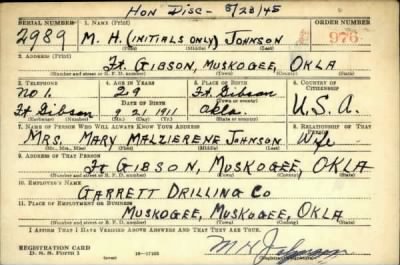 Hon Disc- 8/23/45
SERIAL NUMBER 1. NAME (Print) ORDER NUMBER
2989 M. H. (INITIALS ONLY) JOHNSON 976
(First) (Middle) (Last)
2. ADDRESS (Print)
Ft. GIBSON, MUSKOGEE, OKLA
(Number and street or R. F. D. number) (Town) (County) (State)
3. TELEPHONE 4. AGE IN YEARS 5. PLACE OF BIRTH 6. COUNTRY OF CITIZENSHIP
No 1. 29 Ft Gibson
DATE OF BIRTH (Town or county)
Ft Gibson 9 21 1911 Okla. U.S.A.
(Exchange) (Number) (Mo.) (Day) (Yr.) (State or country)
7. NAME OF PERSON WHO WILL ALWAYS KNOW YOUR ADDRESS 8. RELATIONSHIP OF THAT PERSON
MRS. MARY MALZIERENE JOHNSON Wife
(Mr., Mrs., Miss) (First) (Middle) (Last)
9. ADDRESS OF THAT PERSON
Ft GIBSON, MUSKOGEE, OKLA
(Number and street or R. F. D. number) (Town) (County) (State)
10. EMPLOYER'S NAME
GARRETT DRILLING Co
11. PLACE OF EMPLOYMENT OR BUSINESS
MUSKOGEE, MUSKOGEE, OKLA.
(Number and street or R. F. D. number) (Town) (County) (State)
I AFFIRM THAT I HAVE VERIFIED ABOVE ANSWERS AND THAT THEY ARE TRUE.
REGISTRATION CARD M H Johnson
D. S. S. Form 1 16-17105 (Registrant's signature)